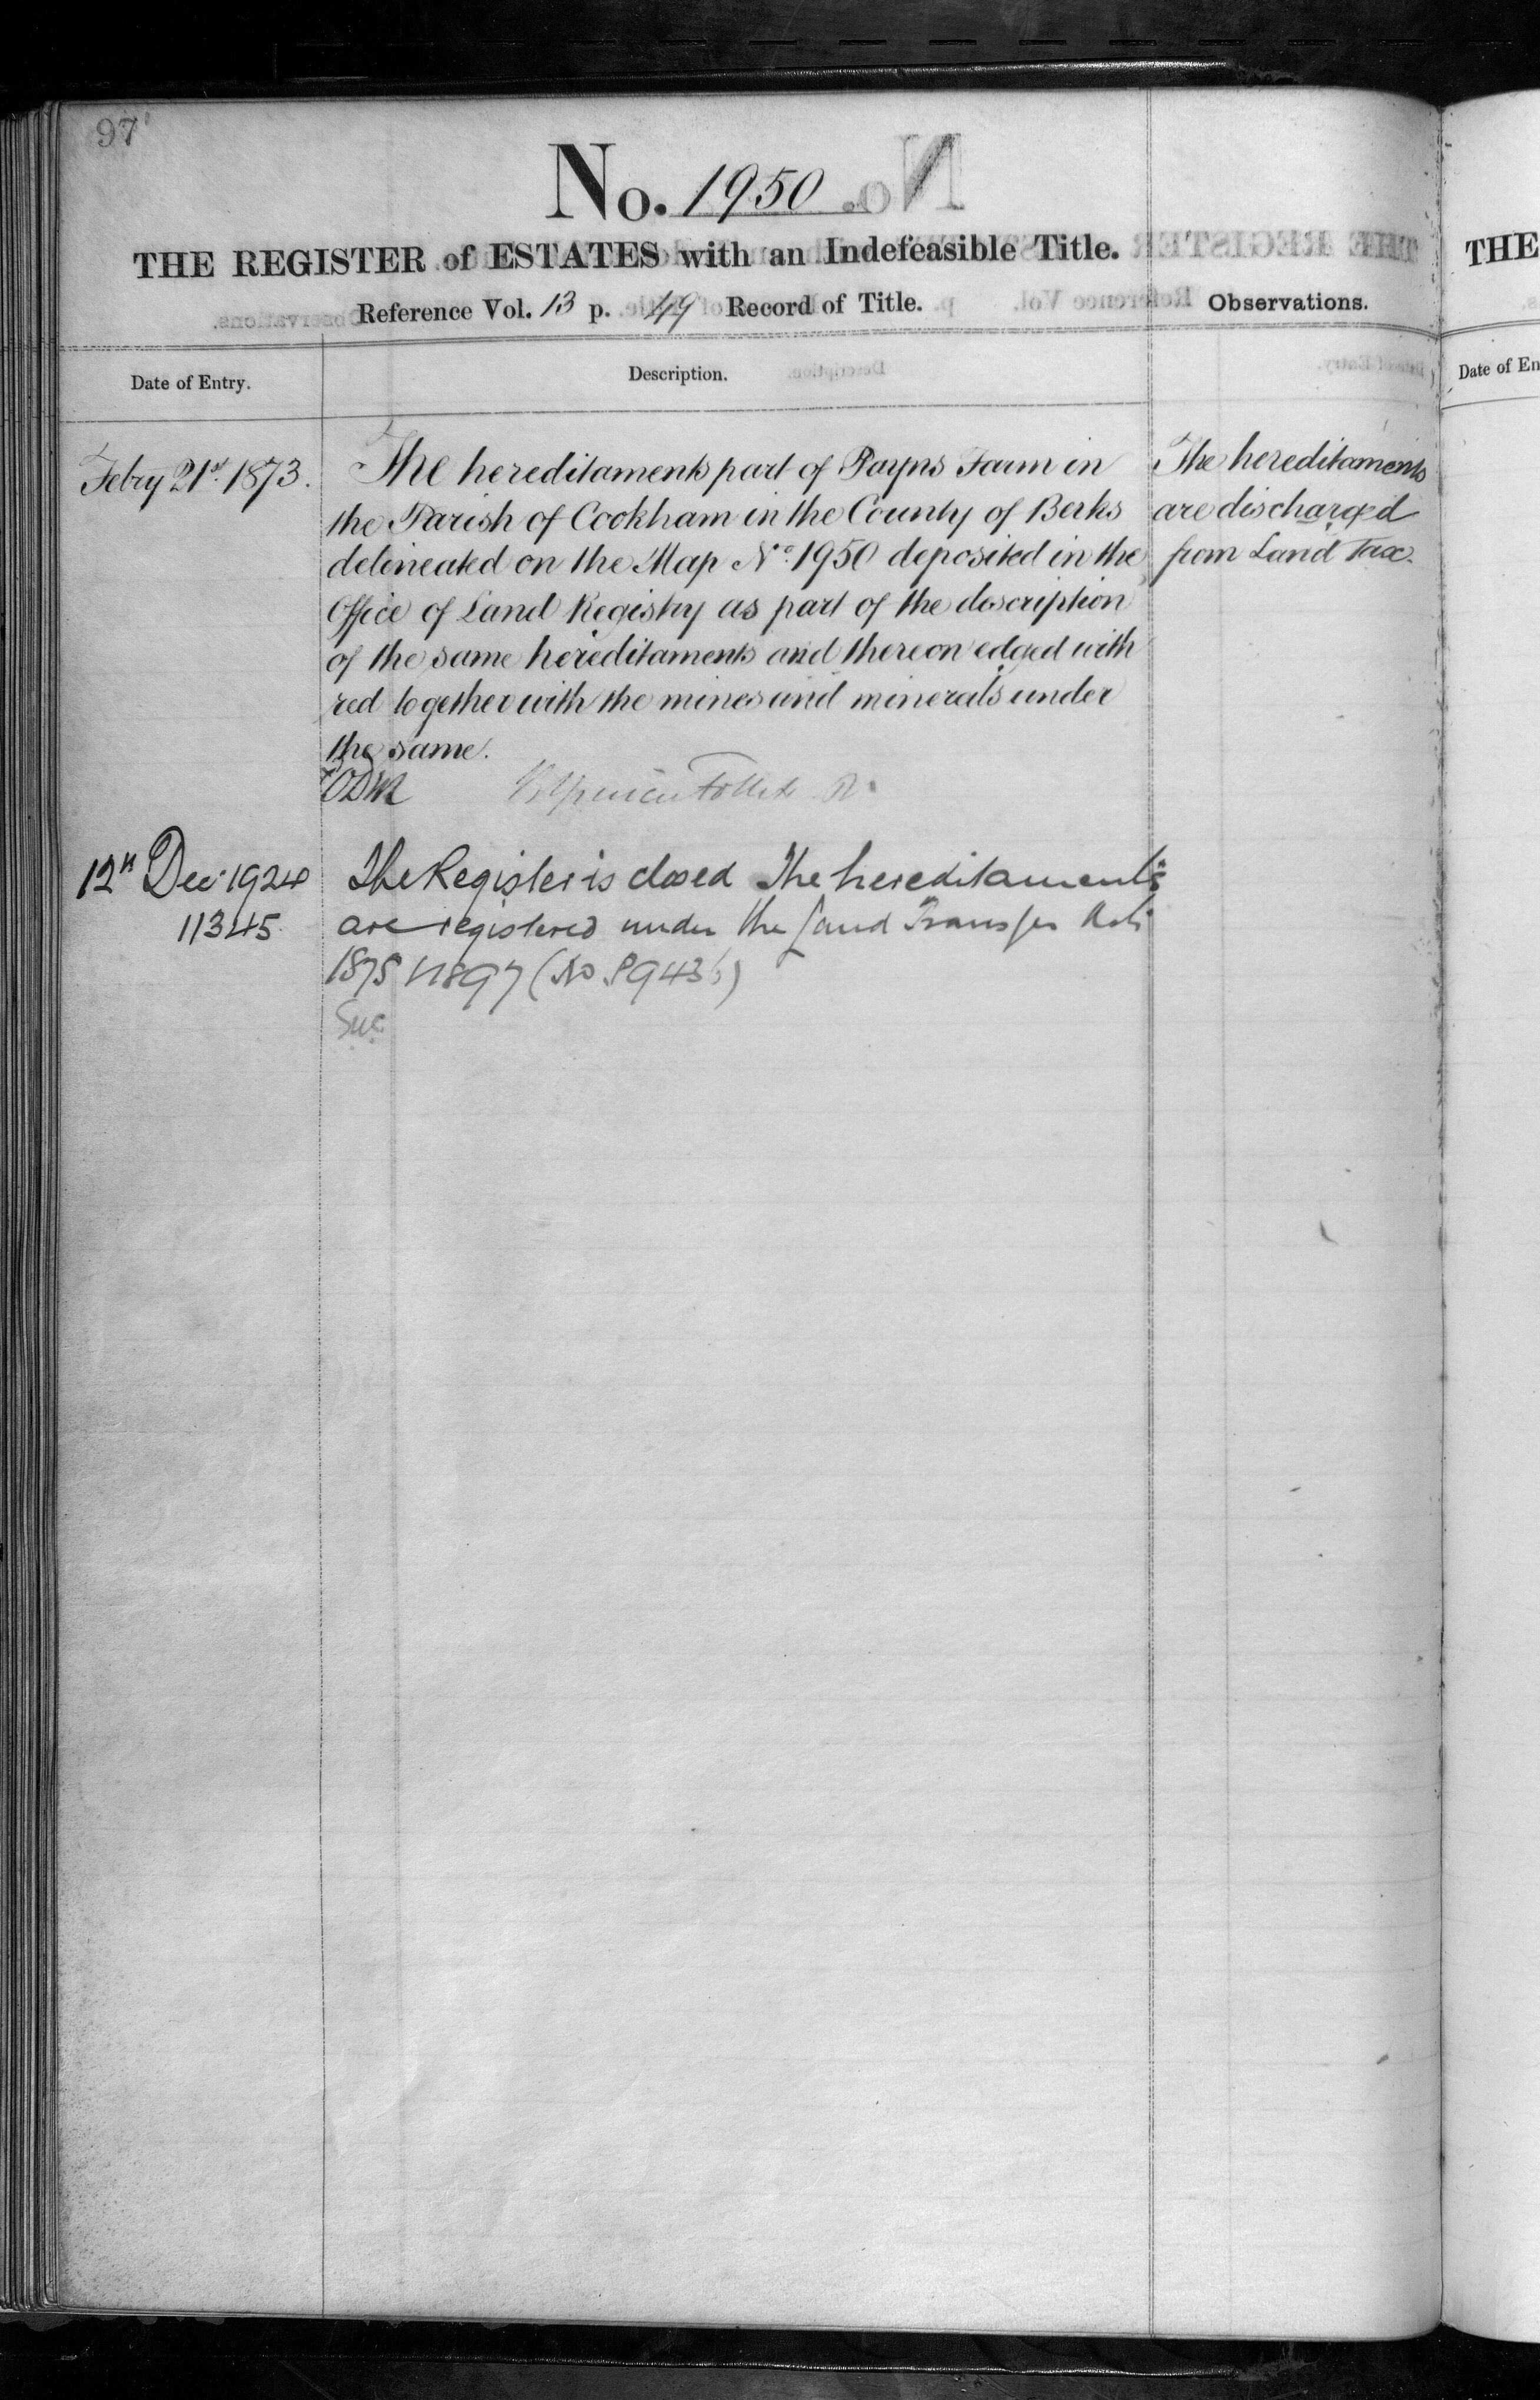 97
No. 1950
THE REGISTER of ESTATES with an Indefeasible Title.
Reference Vol. 13 p. 49 Record of Title.
Observations.
Date of Entry.
Description.
Febry 21st 1873.
The hereditaments part of Payns Farm in
the Parish of Cookham in the County of Berks
delineated on the Map No. 1950 deposited in the
Office of Land Registry as part of the description
of the same hereditaments and thereon edged with
red together with the mines and minerals under
the same.
The hereditaments
are discharged
from Land Tax.
Follett R.
12th Dec. 1924
11345
The Register is closed The hereditaments
are registered under the Land Transfer Acts
1875 & 1897 (No.
THE
Date of En